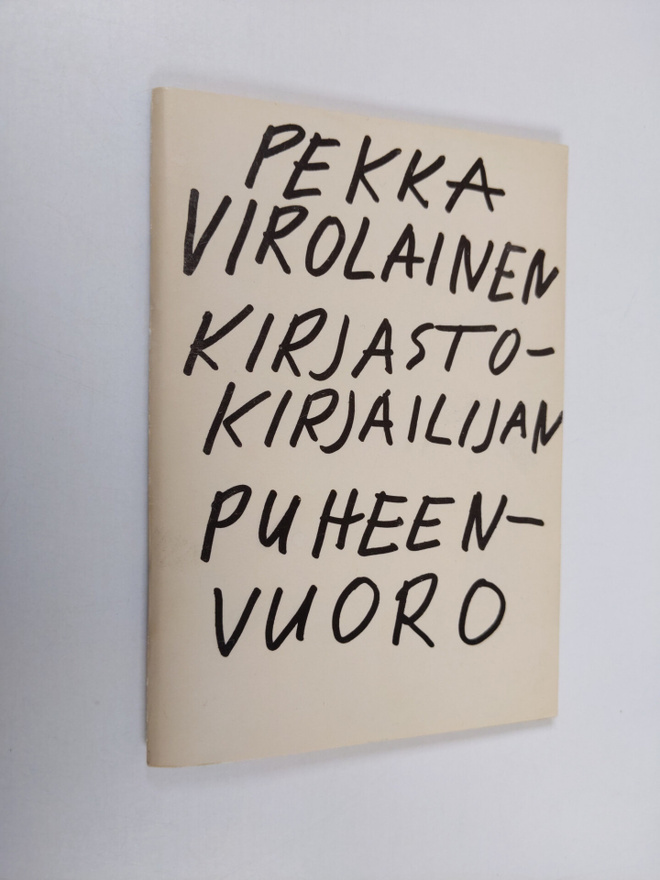 PEKKA
VIROLAINEN
KIRJASTO-
KIRJAILIJAN
PUHEEN-
VUORO